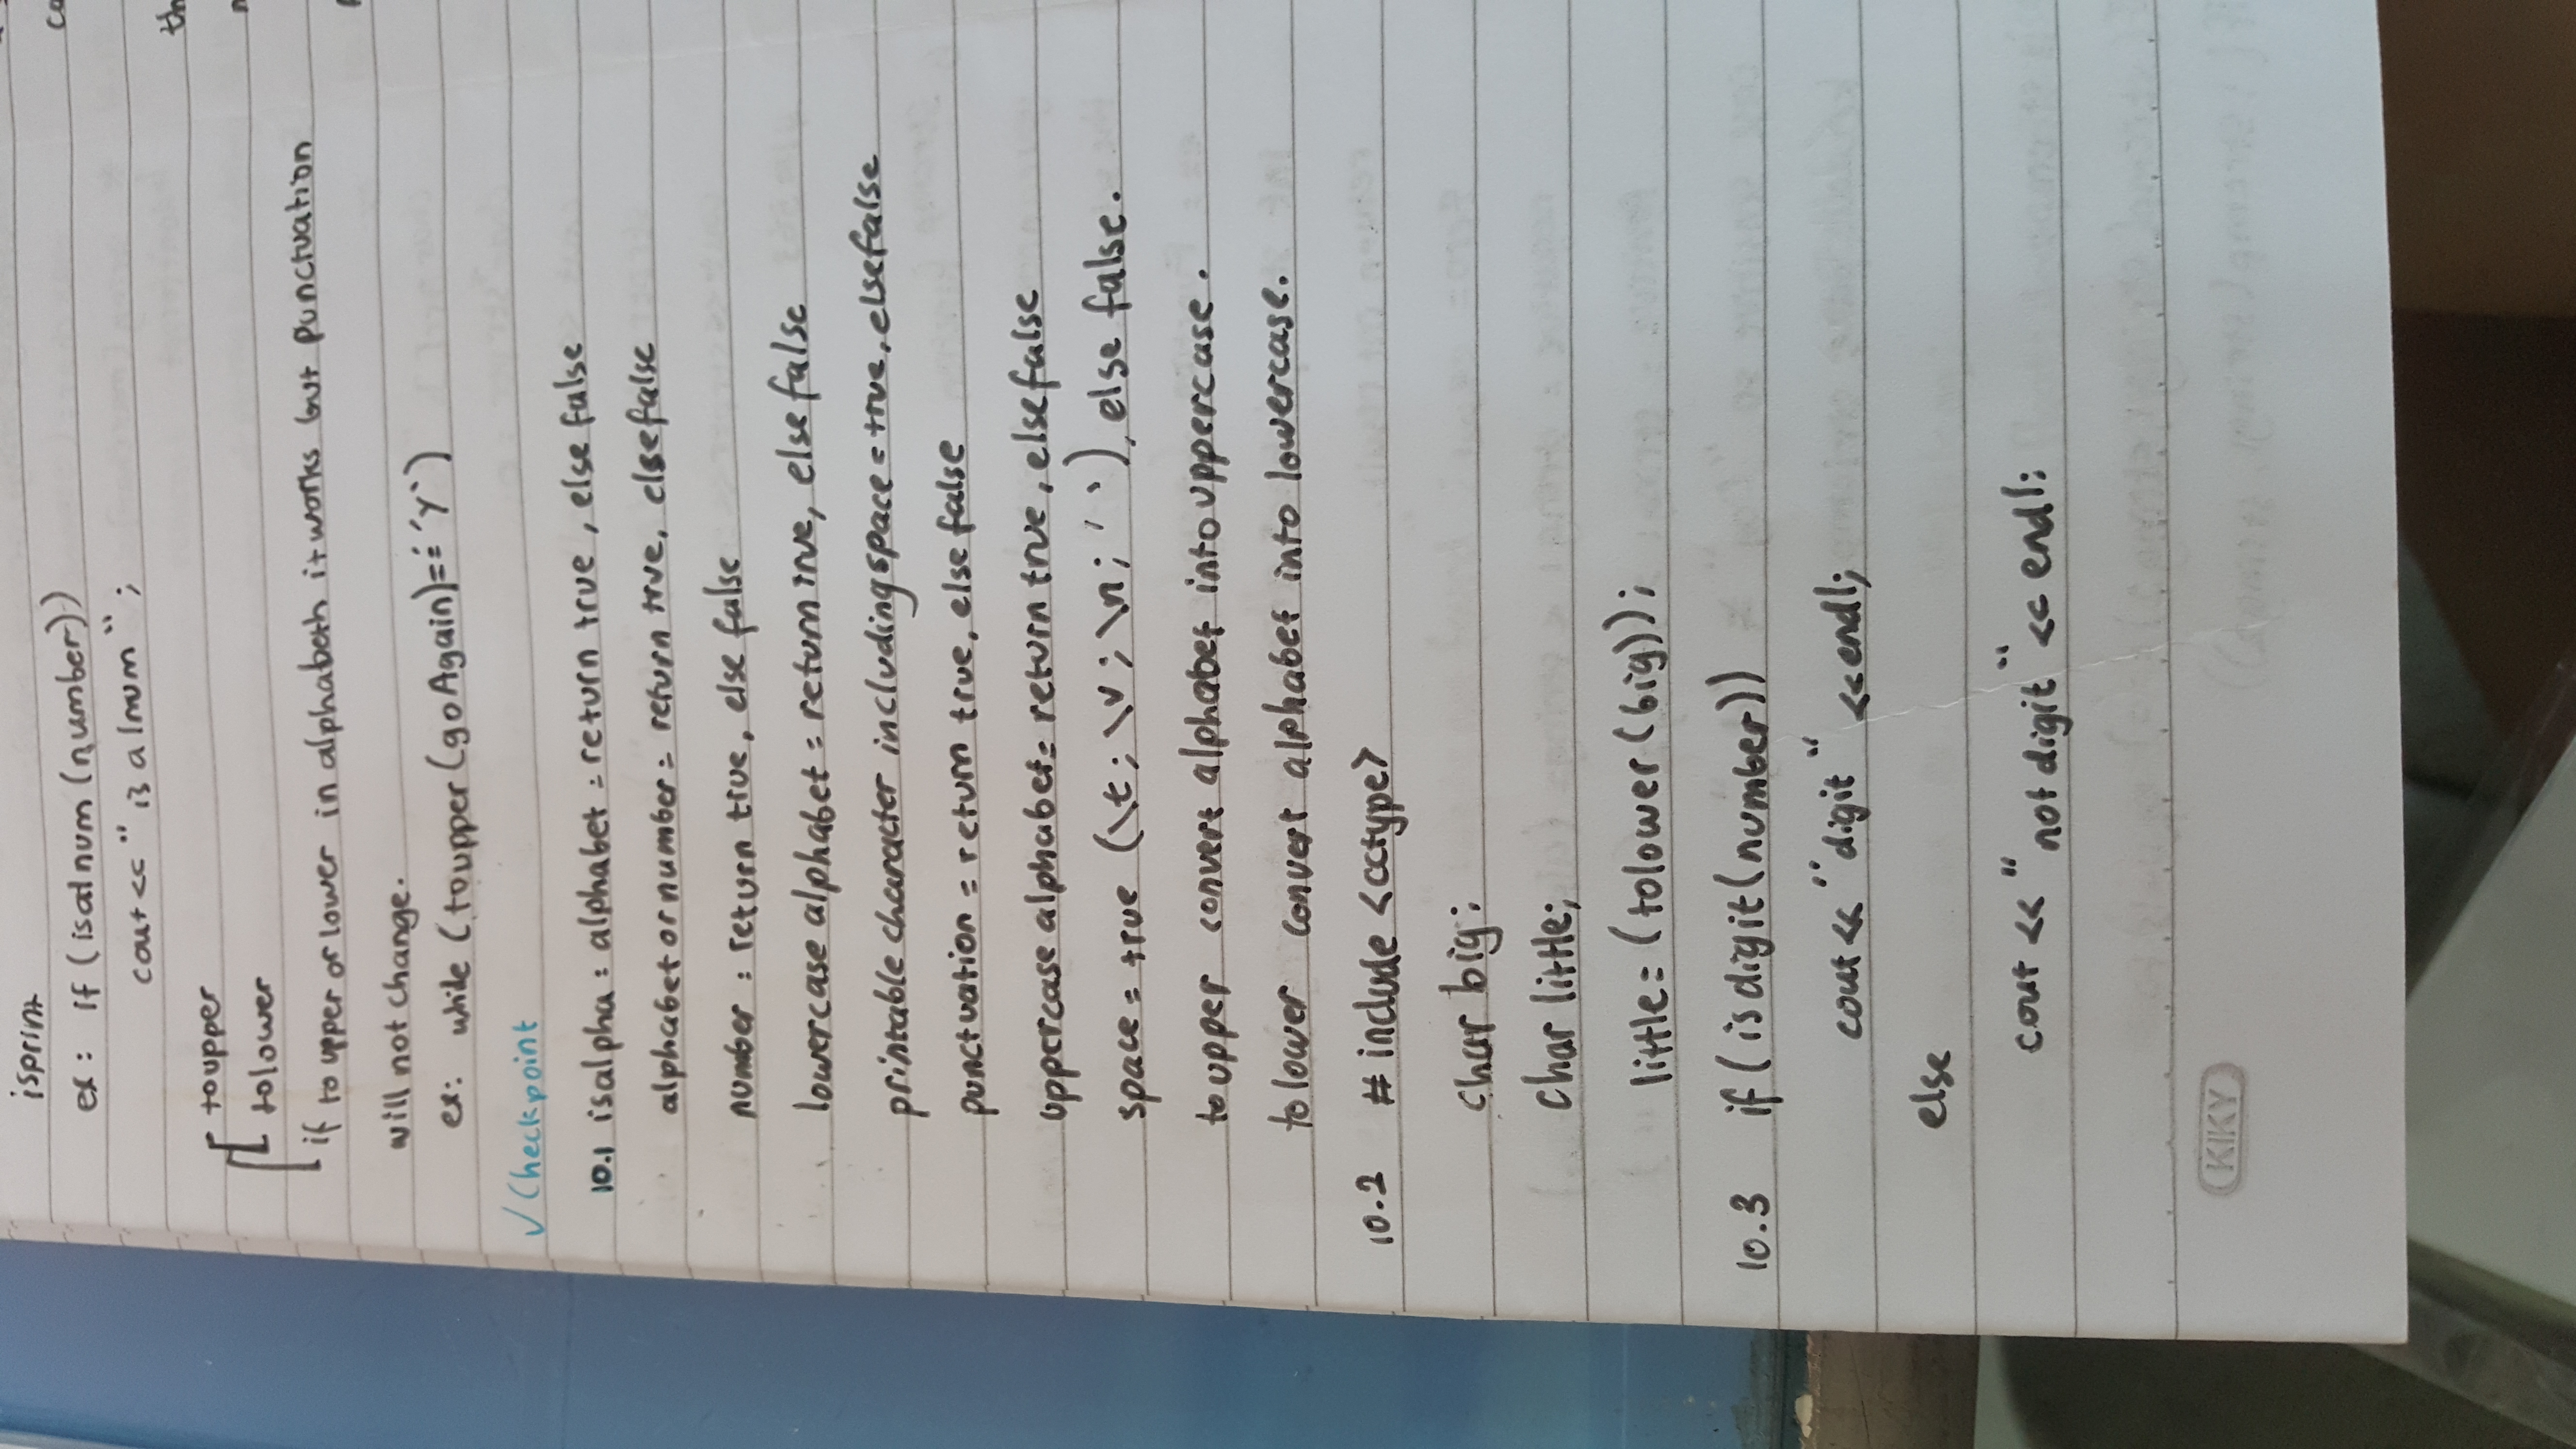 isprint
ex: if (isalnum (number))
cout << " is alnum ";
toupper
tolower
if to upper or lower in alphabeth it works but punctuation
will not change.
ex: while (toupper (goAgain) == 'Y')
✓ Checkpoint
10.1 isalpha: alphabet = return true, else false
alphabet or number = return true, else false
number : return true, else false
lowercase alphabet = return true, else false
printable character including space = true, else false
punctuation = return true, else false
uppercase alphabet = return true, else false
space = true (\t; \v; \n; ' '), else false.
to upper convert alphabet into uppercase.
to lower convert alphabet into lowercase.
10.2 # include <cctype>
char big;
char little;
little = (tolower (big));
10.3 if (isdigit (number))
cout << "digit" << endl;
else
cout << "not digit" << endl;
KIKY